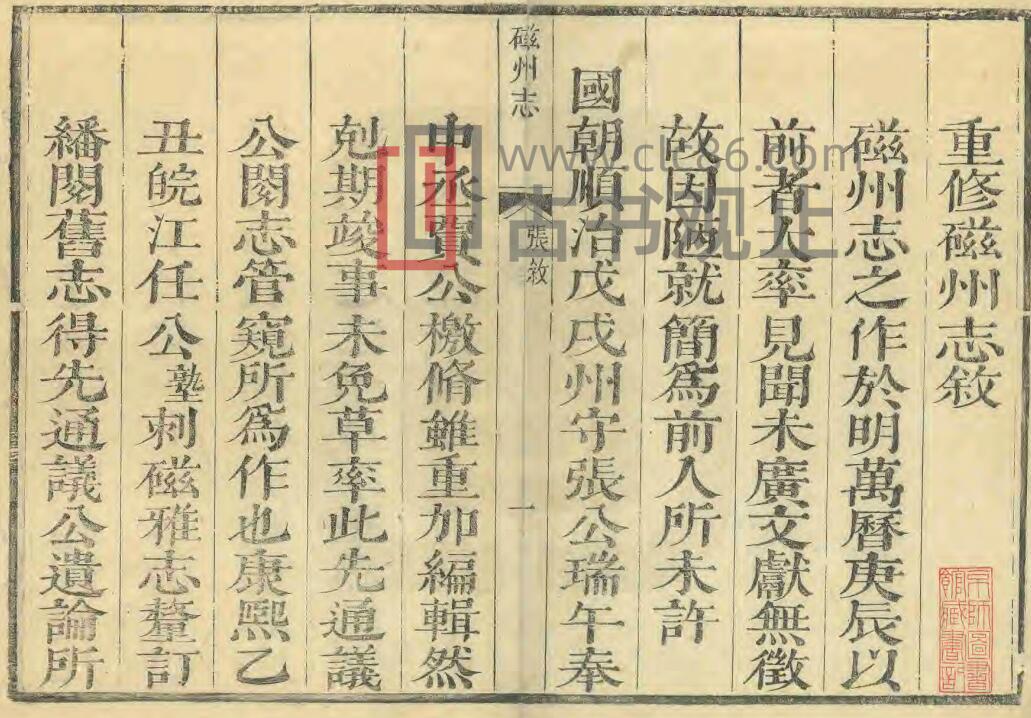 重修磁州志敘
磁州志之作於明萬曆庚辰以
前者大率見聞未廣文獻無徵
故因陋就簡為前人所未許
國朝順治戊戌州守張公瑞午奉
磁州志
張敘
一
中丞賈公檄脩雖重加編輯然
剋期竣事未免草率此先通議
公閱志管窺所為作也康熙乙
丑皖江任公塾刺磁雅志釐訂
繙閱舊志得先通議公遺論所
京師圖書
館藏書記
www.clc86.com
古书视正